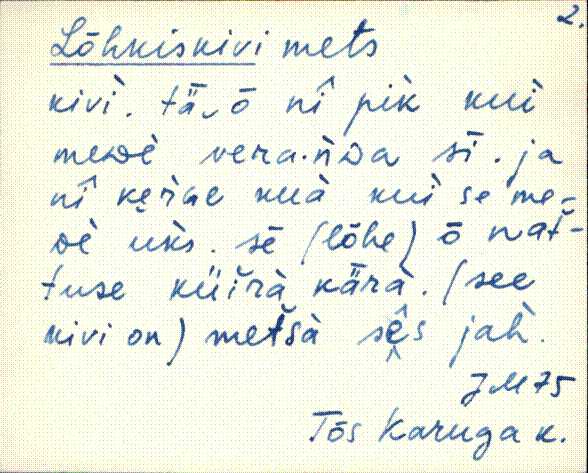 2.
Lõhkiskivi mets
kivì. tä‿ō nî pìk kuì
meᴅè vera·ǹᴅa sī. ja
nî keŕ̀ge kuà kuì se me-
ᴅè ùks. sē (lõhe) ō nat̆-
tuse küìrà kä̀rà. (see
kivi on) metšà sês jah̀.
JM 75
Tõs Karuga k.